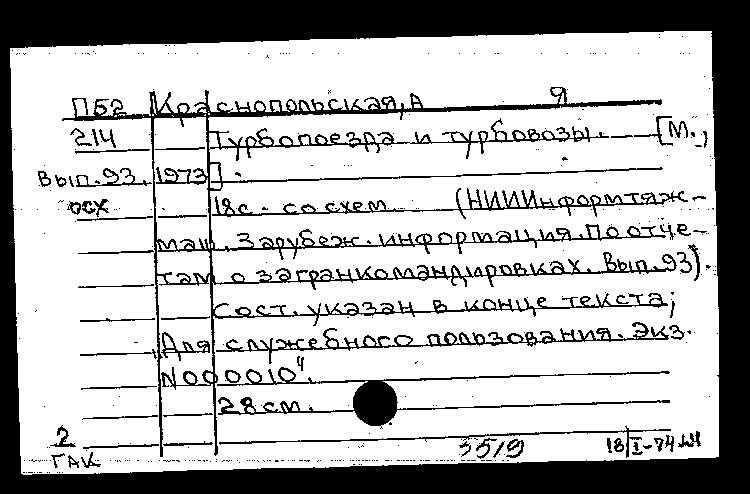 П62 Краснопольская, А Я
214 Турбопоезда и турбовозы. [М.,
Вып.93. 1973].
осх 18с. со схем (НИИИнформтяж-
маш. Зарубеж. информация. По отче-
там о загранкомандировках. Вып.93).
Сост. указан в конце текста;
"Для служебного пользования. Экз.
N000010".
28см.
2 3519 18/I-74
ГАК